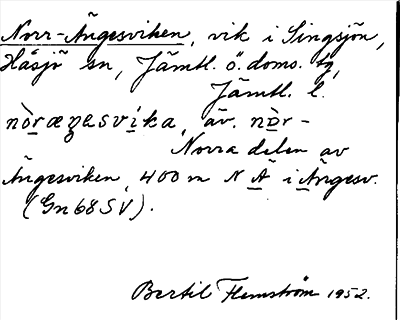 Norr-Ängesviken, vik i Singsjön,
Häsjö sn, Jämtl. ö. doms. tg,
Jämtl. l.
nòræŋesvika, äv. nòr-
Norra delen av
Ängesviken, 400 m N Ä i Ängesv.
(Gn 68 SV).
Bertil Flemström 1952.